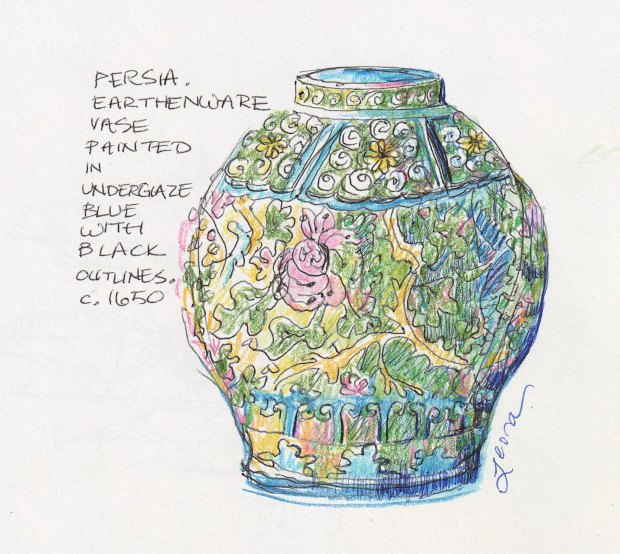 PERSIA.
EARTHENWARE
VASE
PAINTED
IN
UNDERGLAZE
BLUE
WITH
BLACK
OUTLINES.
C. 1650
Leora.